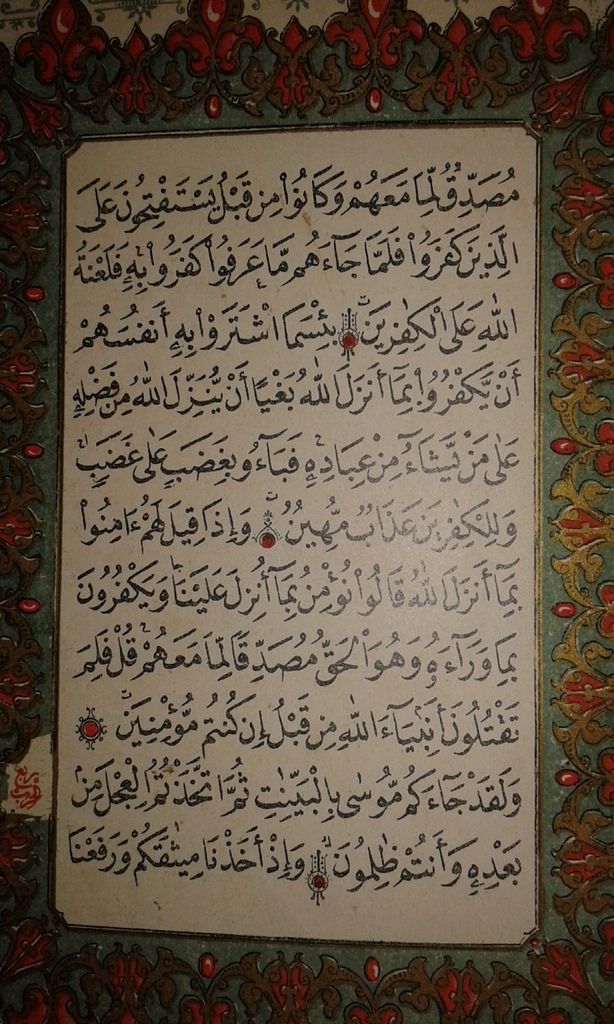 مُصَدِّقٌ لِّمَا مَعَهُمْ وَكَانُوا۟ مِن قَبْلُ يَسْتَفْتِحُونَ عَلَى
الَّذِينَ كَفَرُوا۟ فَلَمَّا جَآءَهُم مَّا عَرَفُوا۟ كَفَرُوا۟ بِهِۦ فَلَعْنَةُ
اللَّهِ عَلَى الْكَٰفِرِينَ بِئْسَمَا اشْتَرَوْا۟ بِهِۦٓ أَنفُسَهُمْ
أَنْ يَّكْفُرُوا۟ بِمَآ أَنزَلَ اللَّهُ بَغْيًا أَنْ يُّنَزِّلَ اللَّهُ مِن فَضْلِهِۦ
عَلَىٰ مَنْ يَّشَآءُ مِنْ عِبَادِهِۦ فَبَآءُو بِغَضَبٍ عَلَىٰ غَضَبٍ
وَلِلْكَٰفِرِينَ عَذَابٌ مُّهِينٌ وَإِذَا قِيلَ لَهُمْ ءَامِنُوا۟
بِمَآ أَنزَلَ اللَّهُ قَالُوا۟ نُؤْمِنُ بِمَآ أُنزِلَ عَلَيْنَا وَيَكْفُرُونَ
بِمَا وَرَآءَهُۥ وَهُوَ الْحَقُّ مُصَدِّقًا لِّمَا مَعَهُمْ قُلْ فَلِمَ
تَقْتُلُونَ أَنۢبِيَآءَ اللَّهِ مِن قَبْلُ إِن كُنتُم مُّؤْمِنِينَ
وَلَقَدْ جَآءَكُم مُّوسَىٰ بِالْبَيِّنَٰتِ ثُمَّ اتَّخَذْتُمُ الْعِجْلَ مِنۢ
بَعْدِهِۦ وَأَنتُمْ ظَٰلِمُونَ وَإِذْ أَخَذْنَا مِيثَٰقَكُمْ وَرَفَعْنَا